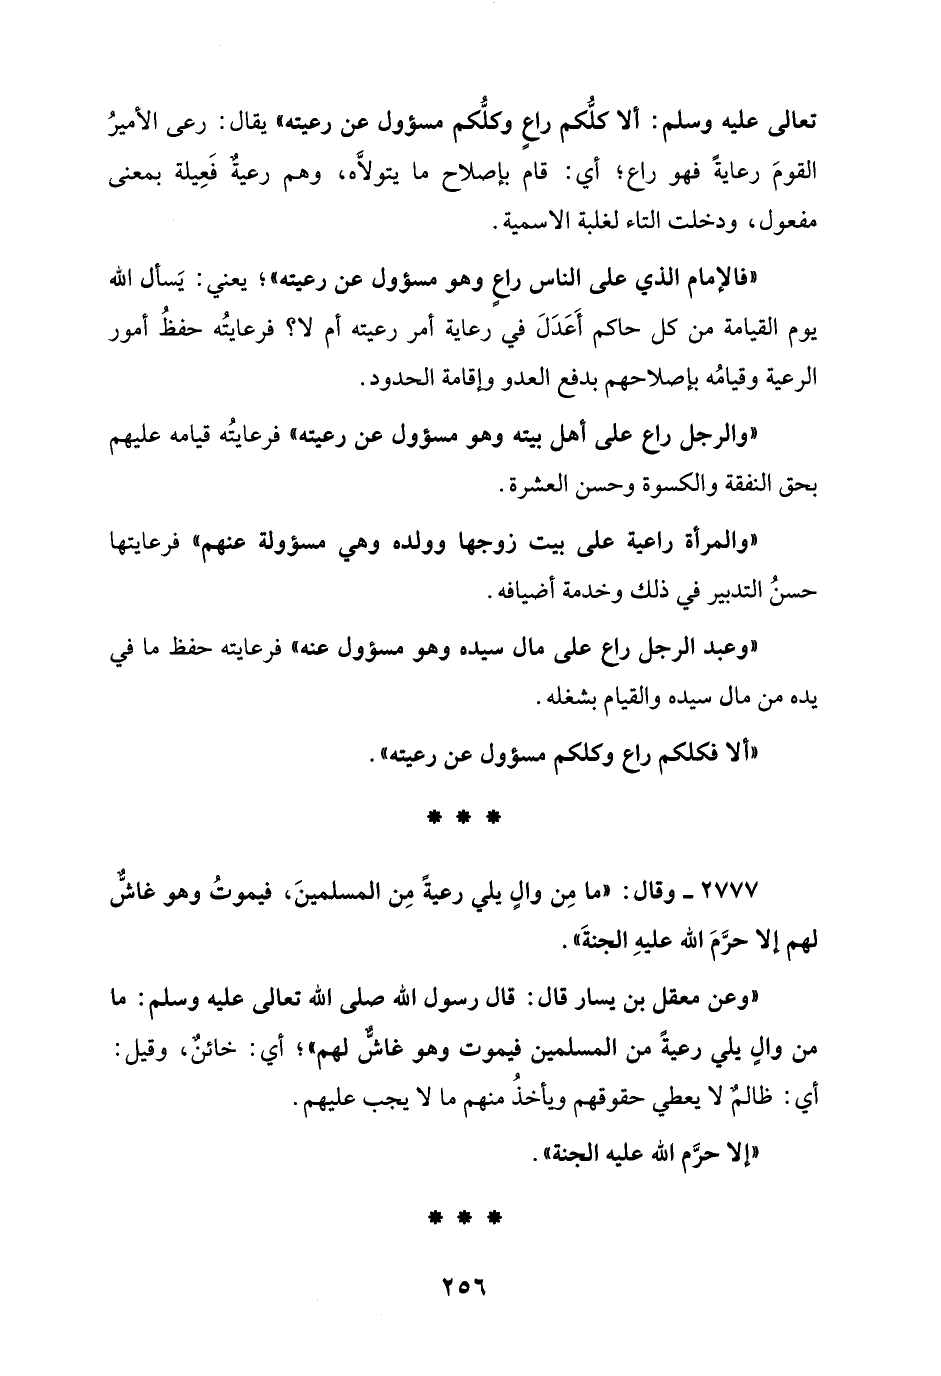 تعالى عليه وسلم: ألا كلُّكم راعٍ وكلُّكم مسؤول عن رعيته» يقال: رعى الأميرُ
القومَ رعايةً فهو راع؛ أي: قام بإصلاح ما يتولاَّه، وهم رعيةٌ فَعِيلة بمعنى
مفعول، ودخلت التاء لغلبة الاسمية.
«فالإمام الذي على الناس راعٍ وهو مسؤول عن رعيته»؛ يعني: يَسأل الله
يوم القيامة من كل حاكم أَعَدَلَ في رعاية أمر رعيته أم لا؟ فرعايتُه حفظُ أمور
الرعية وقيامُه بإصلاحهم بدفع العدو وإقامة الحدود.
«والرجل راع على أهل بيته وهو مسؤول عن رعيته» فرعايتُه قيامه عليهم
بحق النفقة والكسوة وحسن العشرة.
«والمرأة راعية على بيت زوجها وولده وهي مسؤولة عنهم» فرعايتها
حسنُ التدبير في ذلك وخدمة أضيافه.
«وعبد الرجل راع على مال سيده وهو مسؤول عنه» فرعايته حفظ ما في
يده من مال سيده والقيام بشغله.
«ألا فكلكم راع وكلكم مسؤول عن رعيته».
* * *
٢٧٧٧ ـ وقال: «ما مِن والٍ يلي رعيةً مِن المسلمينَ، فيموتُ وهو غاشٌّ
لهم إلا حرَّمَ الله عليهِ الجنةَ».
«وعن معقل بن يسار قال: قال رسول الله صلى الله تعالى عليه وسلم: ما
من والٍ يلي رعيةً من المسلمين فيموت وهو غاشٌّ لهم»؛ أي: خائنٌ، وقيل:
أي: ظالمٌ لا يعطي حقوقهم ويأخذُ منهم ما لا يجب عليهم.
«إلا حرَّم الله عليه الجنة».
* * *
٢٥٦